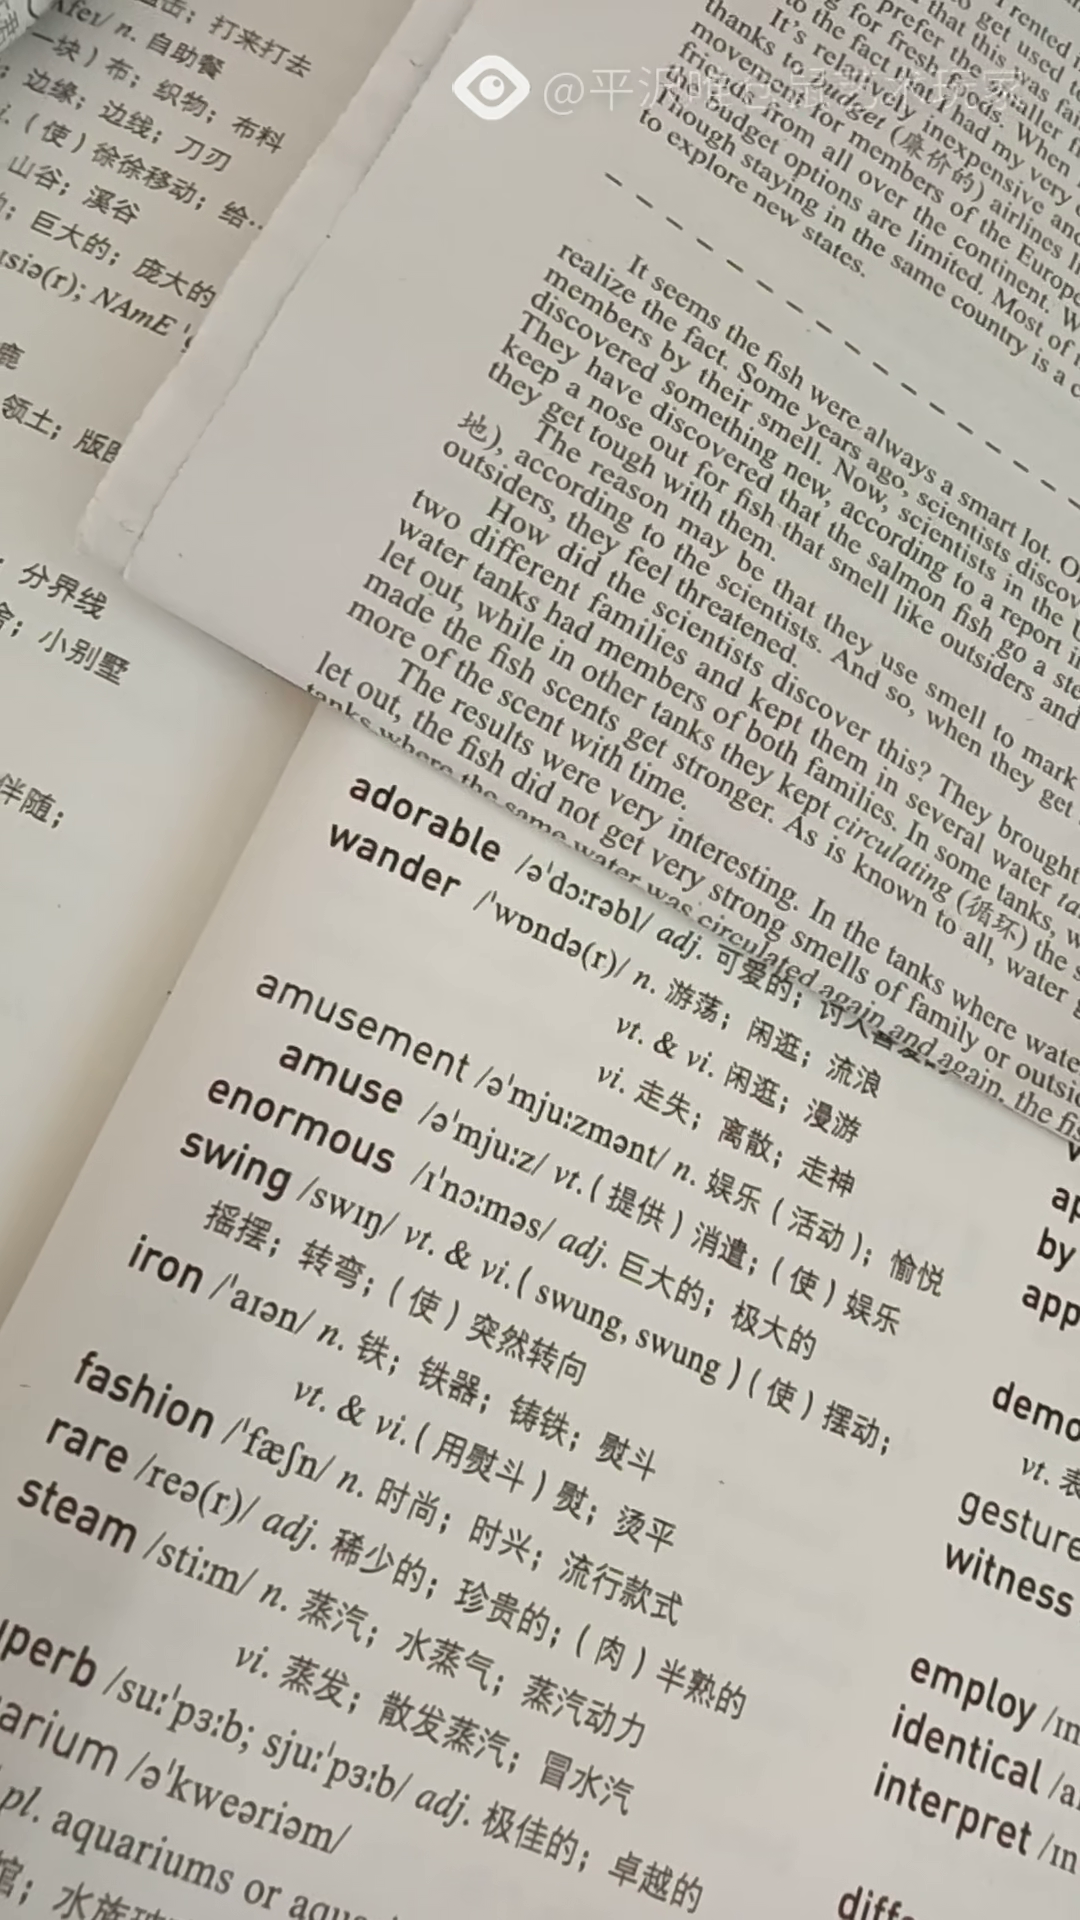 @平沢唯心最艺术玩家
击; 打来打去
n. 自助餐
一块）布；织物；布料
边缘；边线；刀刃
（使）徐徐移动；给…
山谷；溪谷
巨大的；庞大的
usiə(r); NAmE
鹿
领土；版图
分界线
小别墅
伴随；
I rented
to get used to
that this was far
prefer the smaller
for fresh foods. When I
to the fact that I had my very
It's relatively inexpensive and
thanks to budget (廉价的) airlines
movement for members of the Europe
friends from all over the continent. W
the budget options are limited. Most of
Though staying in the same country is a c
to explore new states.
It seems the fish were always a smart lot. O
realize the fact. Some years ago, scientists discov
members by their smell. Now, scientists in the U
discovered something new, according to a report i
They have discovered that the salmon fish go a ste
keep a nose out for fish that smell like outsiders and
they get tough with them.
The reason may be that they use smell to mark
地), according to the scientists. And so, when they get
outsiders, they feel threatened.
How did the scientists discover this? They brought
two different families and kept them in several water ta
water tanks had members of both families. In some tanks, w
let out, while in other tanks they kept circulating (循环) the s
made the fish scents get stronger. As is known to all, water
more of the scent with time.
The results were very interesting. In the tanks where wate
let out, the fish did not get very strong smells of family or outsi
tanks where the same water was circulated again and again, the fis
adorable /əˈdɔːrəbl/ adj. 可爱的；讨人喜爱的
wander /ˈwɒndə(r)/ n. 游荡；闲逛；流浪
vt. & vi. 闲逛；漫游
vi. 走失；离散；走神
amusement /əˈmjuːzmənt/ n. 娱乐（活动）；愉悦
amuse /əˈmjuːz/ vt.（提供）消遣；（使）娱乐
enormous /ɪˈnɔːməs/ adj. 巨大的；极大的
swing /swɪŋ/ vt. & vi.( swung, swung )（使）摆动；
摇摆；转弯；（使）突然转向
iron /ˈaɪən/ n. 铁；铁器；铸铁；熨斗
vt. & vi.（用熨斗）熨；烫平
fashion /ˈfæʃn/ n. 时尚；时兴；流行款式
rare /reə(r)/ adj. 稀少的；珍贵的；（肉）半熟的
steam /stiːm/ n. 蒸汽；水蒸气；蒸汽动力
vi. 蒸发；散发蒸汽；冒水汽
perb /suːˈpɜːb; sjuːˈpɜːb/ adj. 极佳的；卓越的
arium /əˈkweəriəm/
pl. aquariums or aqua
馆；水族
ap
by
app
demo
vt. 表
gesture
witness
employ /ɪm
identical /aɪ
interpret /ɪn
diffe